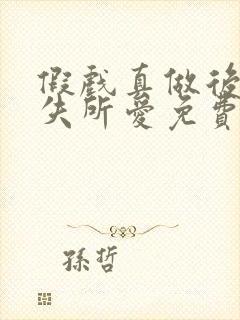 假戲真做後
失所愛免費
孫哲